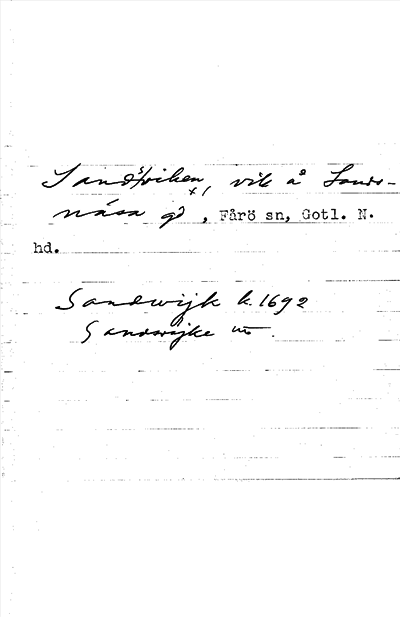 Sandviken, vik å Sands-
näsa gd, Fårö sn, Gotl. N.
hd.
Sandwijk k. 1692
Sandwijke